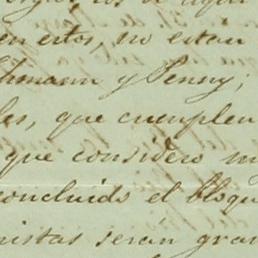 en estos, no estan
hmann y Penny;
les, que cumplen
que considero
concluido el bloqu
nistas serán gran